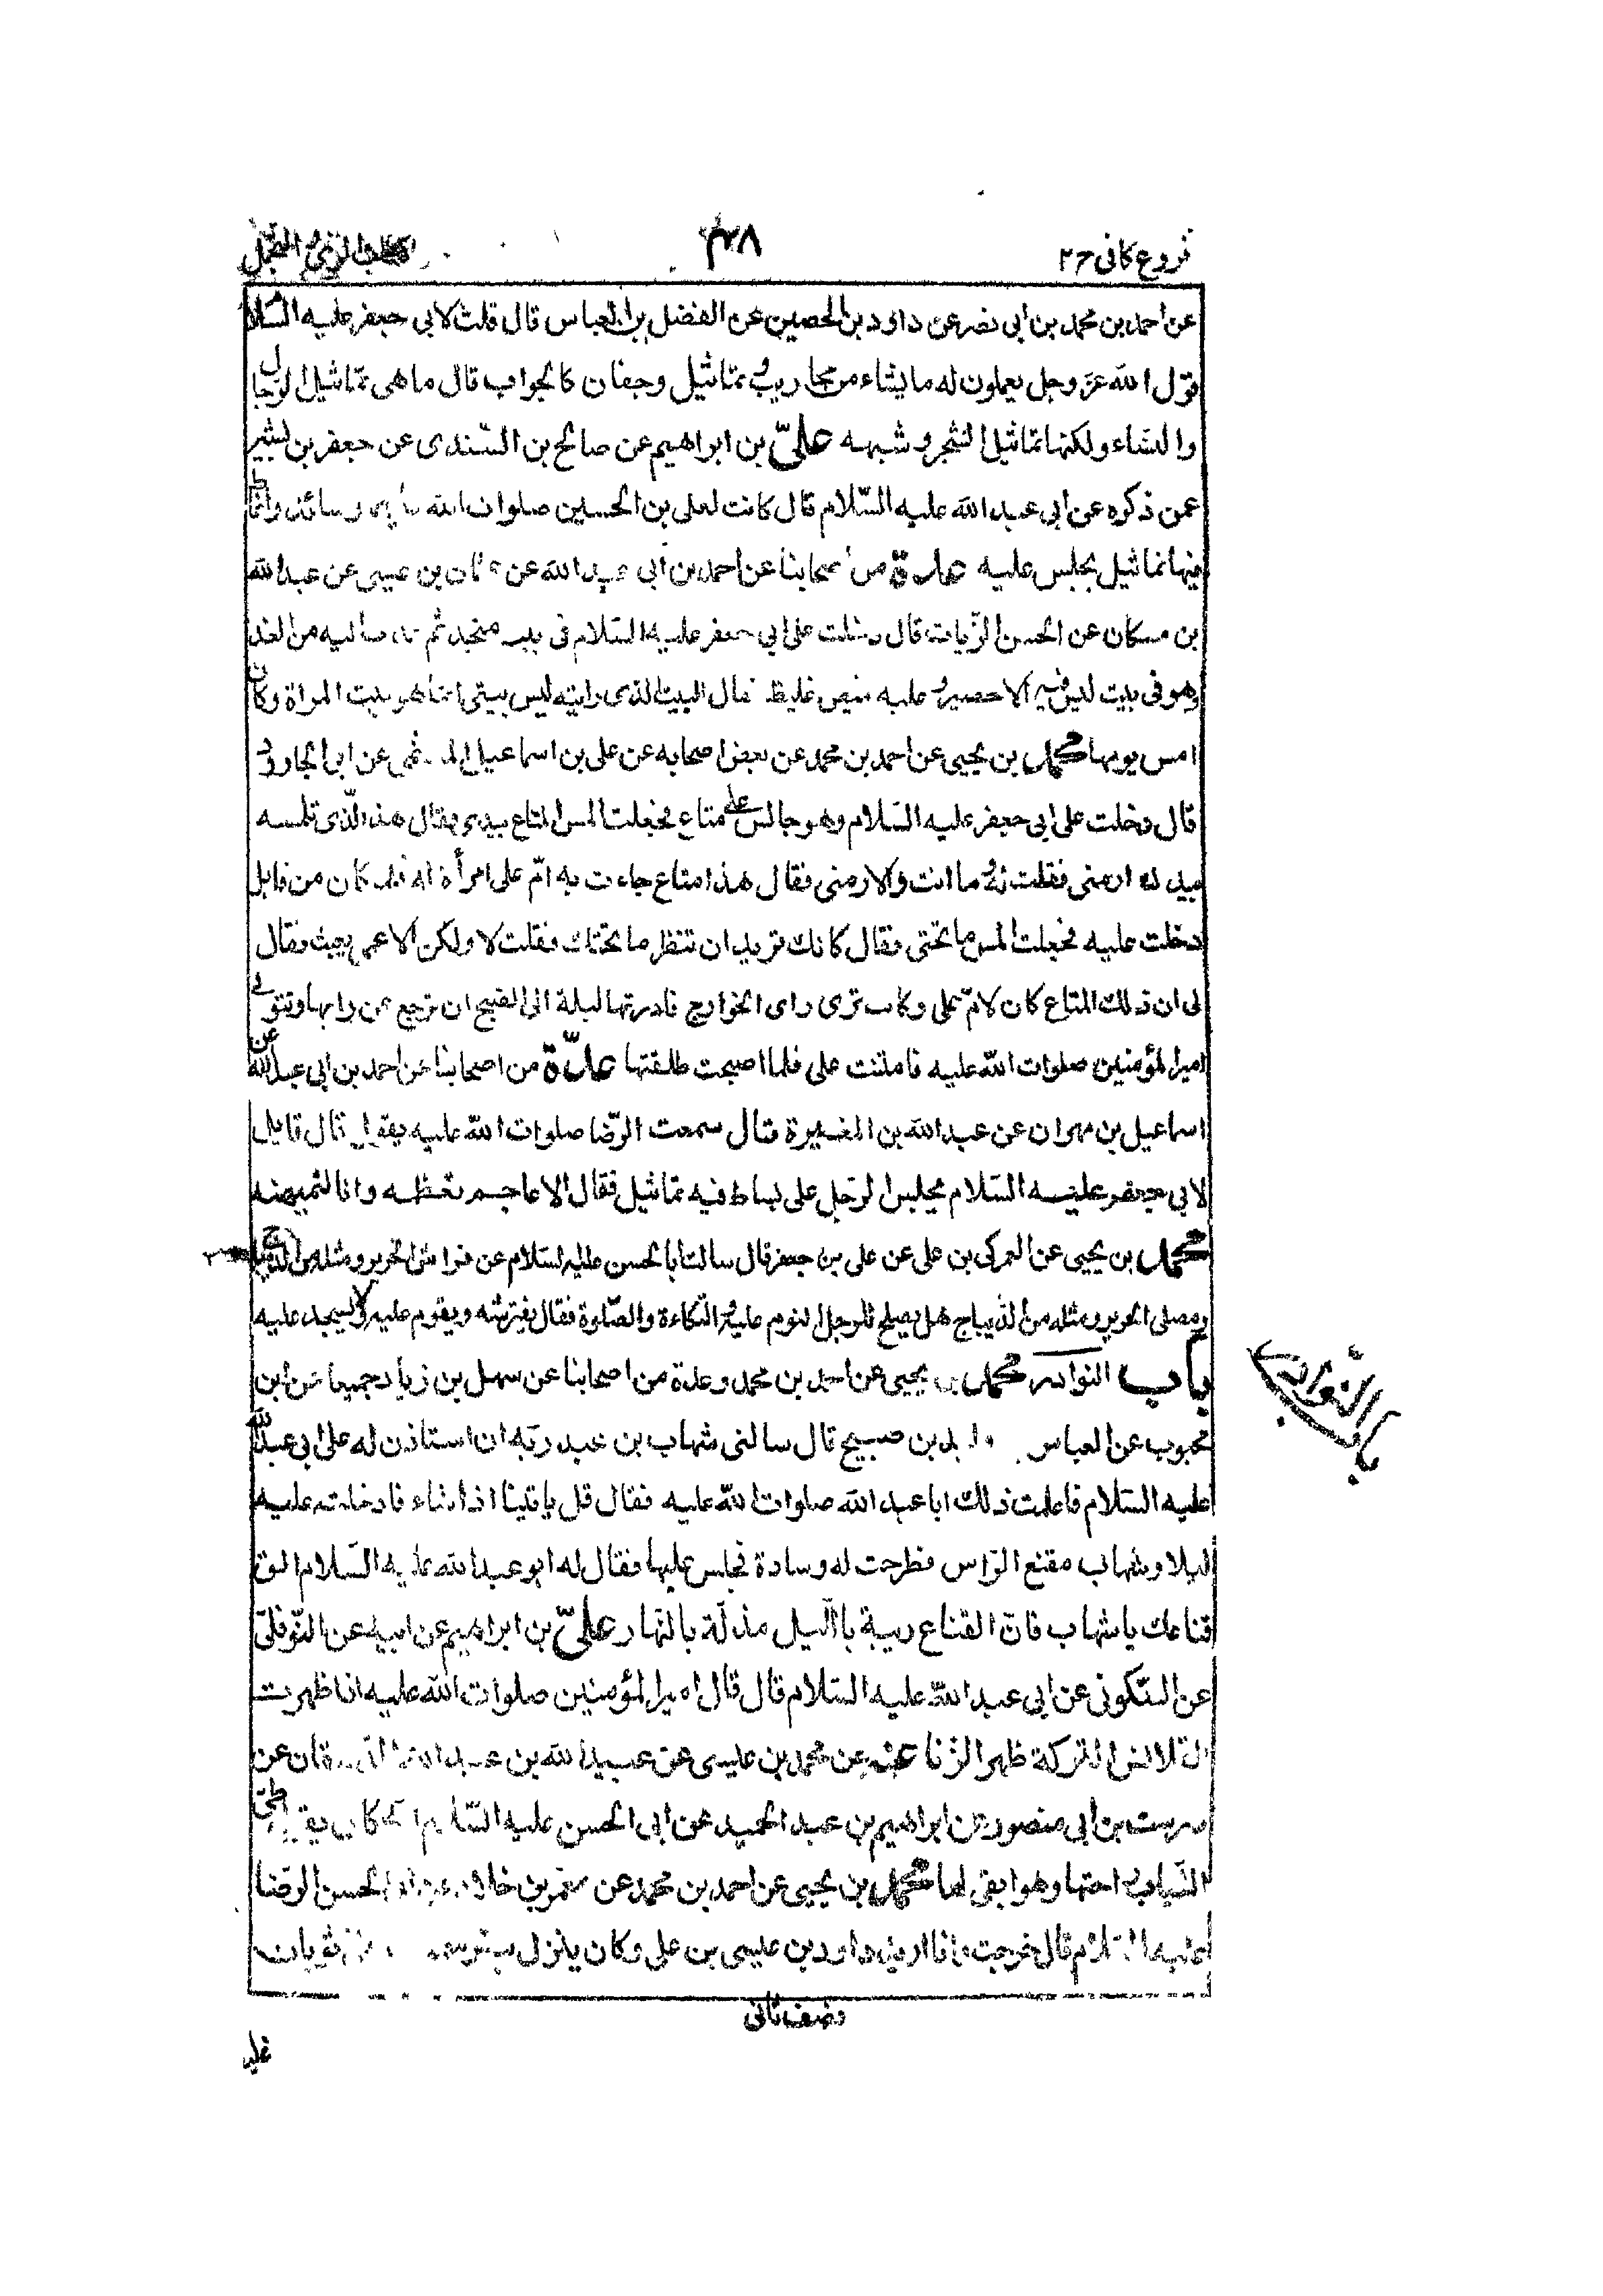 فروع کافی ج۲
۲۳۸
کتاب الزی والتجمل
عن احمد بن محمد بن ابی نصر عن داود بن الحصین عن الفضل بن العباس قال قلت لابی جعفر علیه السلام
قول الله عز وجل یعملون له ما یشاء من محاریب وتماثیل وجفان کالجواب قال ما هی تماثیل الرجال
والنساء ولکنها تماثیل الشجر وشبهه علیّ بن ابراهیم عن صالح بن السندی عن جعفر بن بشیر
عمن ذکره عن ابی عبد الله علیه السّلام قال کانت لعلی بن الحسین صلوات الله وسائد وانماط
فیها تماثیل یجلس علیه عدة من اصحابنا عن احمد بن ابی عبد الله عن عثمان بن عیسی عن عبد الله
بن مسکان عن الحسن الزّیات قال دخلت علی ابی جعفر علیه السلام فی بیت منجد ثم الیه من الغد
وهو فی بیت لیس فیه الا حصیر و علیه قمیص غلیظ فقال البیت الذی رایته لیس بیتی انما هو بیت المراة وکان
امس یومها محمد بن یحیی عن احمد بن محمد عن بعض اصحابه عن علی بن اسماعیل عن ابی الجارود
قال دخلت علی ابی جعفر علیه السلام وهو جالس علی متاع فجعلت المس المتاع بیدی فقال هذا الّذی تلمسه
بیدك ارمنی فقلت له وما انت والارمنی فقال هذا متاع جاءت به امّ علی امرأة له فلما کان من قابل
دخلت علیه فجعلت المس ما تحتی فقال کانك ترید ان تنظر ما تحتك فقلت لا ولکن الاعمی یعبث فقال
لی ان ذلك المتاع کان لامّ علی وکانت تری رای الخوارج فادرتها لیلة الی الصبح ان ترجع عن رایها وتتولی
امیر المؤمنین صلوات الله علیه فامتنعت علی فلما اصبحت طلقتها عدّة من اصحابنا عن احمد بن ابی عبد الله عن
اسماعیل بن مهران عن عبد الله بن المغیرة قال سمعت الرّضا صلوات الله علیه یقول قال قائل
لابی جعفر علیه السّلام یجلس الرّجل علی بساط فیه تماثیل فقال الاعاجم تعظمه وانا لنمهنه
محمد بن یحیی عن العمرکی بن علی عن علی بن جعفر قال سالت ابا الحسن علیه السلام عن فراش الحریر ومثله من الدیباج
ومصلی الحریر ومثله من الدیباج هل یصلح للرجل النوم علیه والتکاءة والصّلوة فقال یفترشه ویقوم علیه ولا یسجد علیه
باب النوادر محمد بن یحیی عن احمد بن محمد وعدة من اصحابنا عن سهل بن زیاد جمیعا عن ابن
محبوب عن العباس بن صبیح قال سالنی شهاب بن عبد ربّه ان استاذن له علی ابی عبد الله
علیه السّلام فاعلمت ذلك ابا عبد الله صلوات الله علیه فقال قل یاتینا اذا شاء فادخلته علیه
لیلا وشهاب مقنع الرّاس فطرحت له وسادة فجلس علیها فقال له ابو عبد الله علیه السّلام الق
قناعك یا شهاب فانّ القناع ریبة باللیل مذلّة بالنّهار علیّ بن ابراهیم عن ابیه عن النّوفلیّ
عن السّکونی عن ابی عبد الله علیه السّلام قال قال امیر المؤمنین صلوات الله علیه اذا ظهرت
القلانس المترکة ظهر الزنا عنه عن محمد بن عیسی عن عبید الله بن عبد الله الدهقان عن
درست بن ابی منصور عن ابراهیم بن عبد الحمید عن ابی الحسن علیه السلام انه کان یقول طیّ
الثّیاب راحتها وهو ابقی لها محمد بن یحیی عن احمد بن محمد عن معمر بن خلاد عن ابی الحسن الرّضا
علیه السلام قال خرجت وانا ارید داود بن عیسی بن علی وکان ینزل بئر ثوبان
باب النّوادر
نصف ثانی